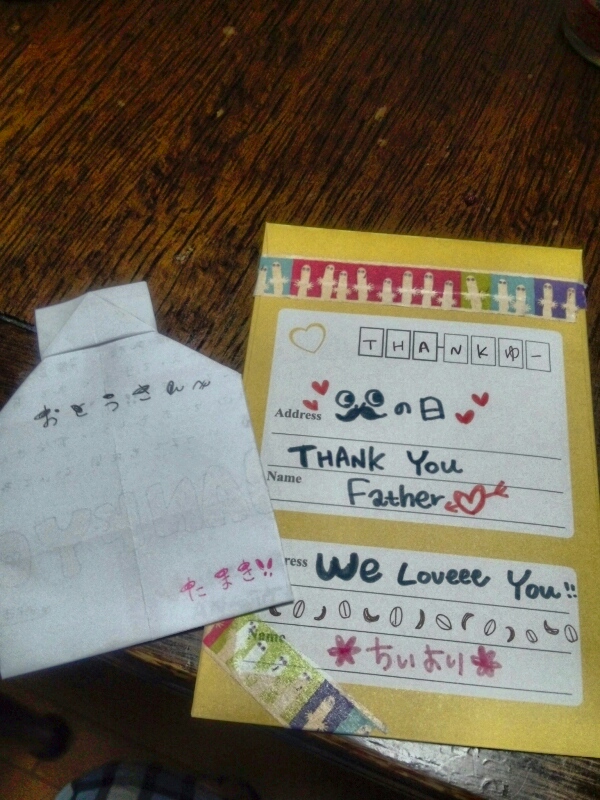 おとうさんへ
たまき!!
THANKゆー
Address
の日
THANK You
Name
Father
ress
We Loveee You!!
Name
ちいより